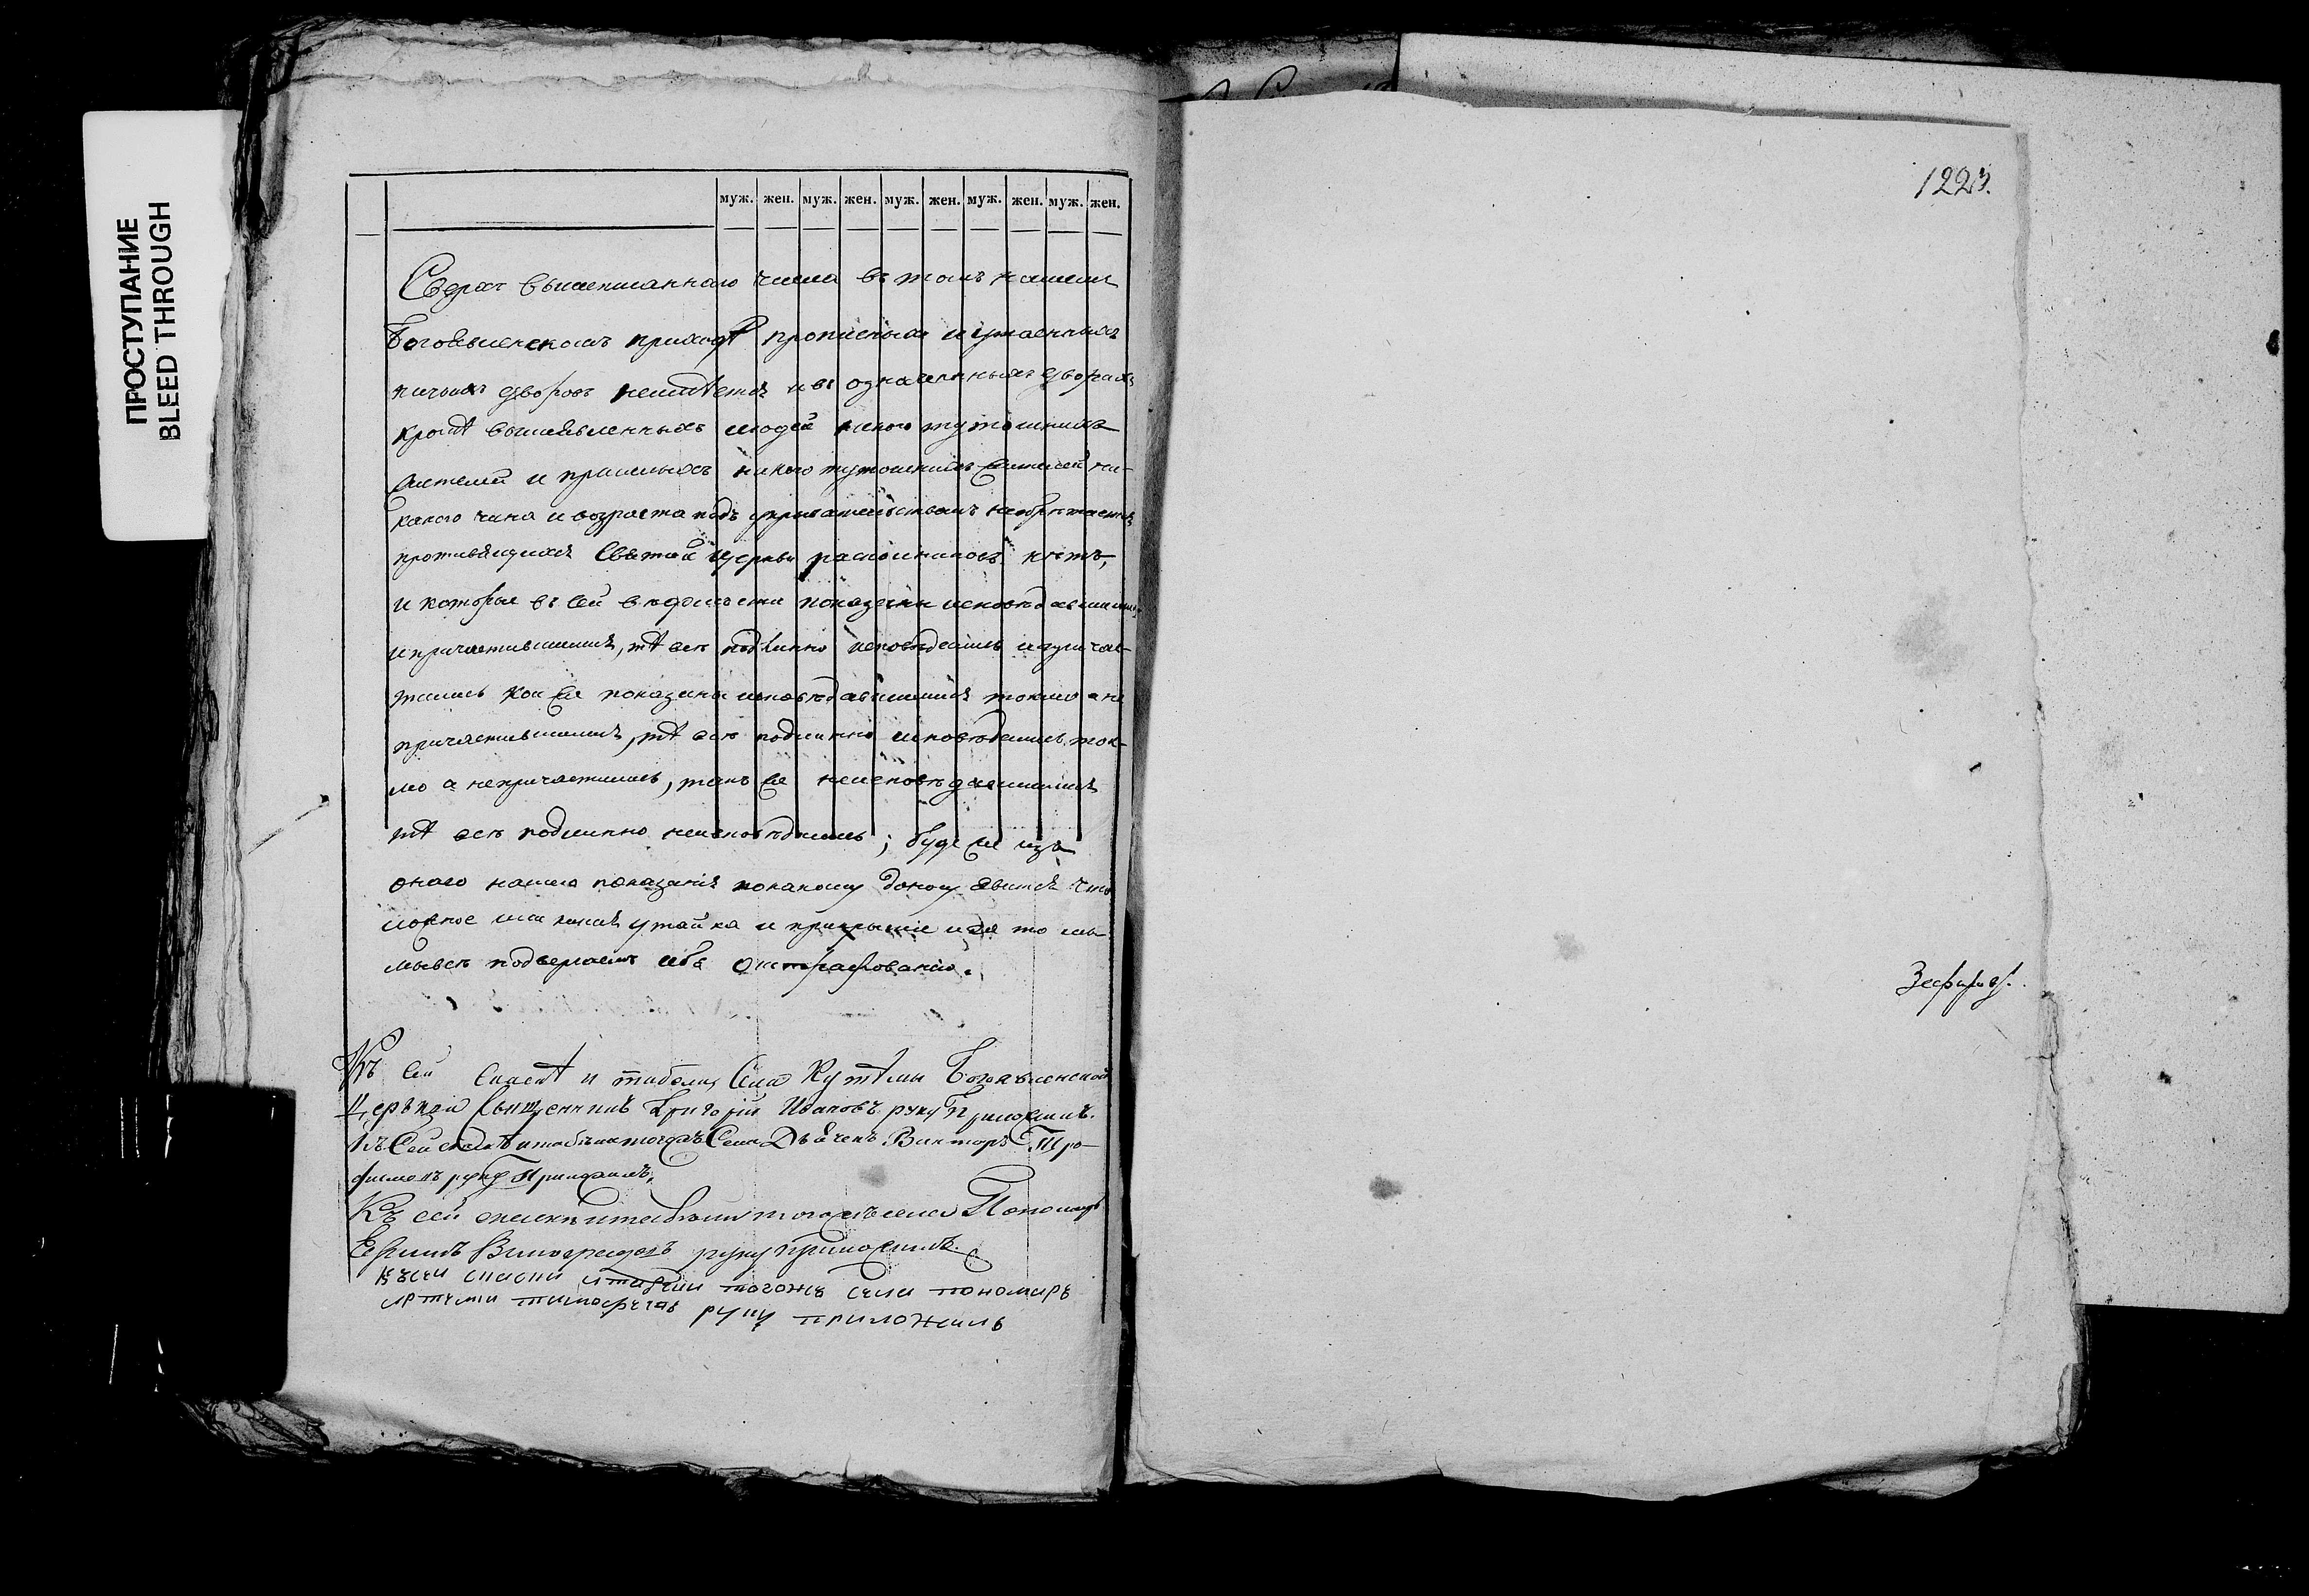 ПРОСТУПАНИЕ
BLEED THROUGH
муж. жен. муж. жен. муж. жен. муж. жен. муж. жен.
Сверхъ вышеписаннаго числа въ томъ нашемъ
Богоявленскомъ приходѣ прописныхъ и утаенныхъ
ничьихъ дворовъ неимѣется и въ означенныхъ дворахъ
кромѣ вышеявленныхъ людей никого тутошнихъ
жителей и пришлыхъ никого тутошнихъ жителей ни-
какого чина и возраста подъ укрывательствомъ необрѣтается
противящихся Святой церкви раскольниковъ нѣтъ,
и которые въ сей вѣдомости показаны исповѣдавшимися
и причастившимися, тѣ всѣ подлинно исповѣдались и причас-
тились кои же показаны исповѣдавшимися токмо а не
причастившимися, тѣ всѣ подлинно исповѣдались ток-
мо а непричастились, такъ же неисповѣдавшимися
тѣ всѣ подлинно неисповѣдались; буде же изъ
онаго нашего показания покакому доносу явится что
ложное или какая утайка и прикрытие и за то мы
подвергаемъ себя оштрафованию.
Къ сей спискѣ и табели Села Кутли Богоявленской
Церькви Священникъ Григорий Ивановъ руку Приложилъ.
Къ Сей спискѣ и табели тогожъ Села Дьячекъ Викторъ Тро-
фимовъ руку Приложилъ.
Къ сей спискѣ и табели тогожъ села Пономарь
Ефимъ Виноградовъ руку приложилъ.
къ сеи списки и табели тогожъ села пономарь
артемеи тимофеевъ руку приложилъ
1223.